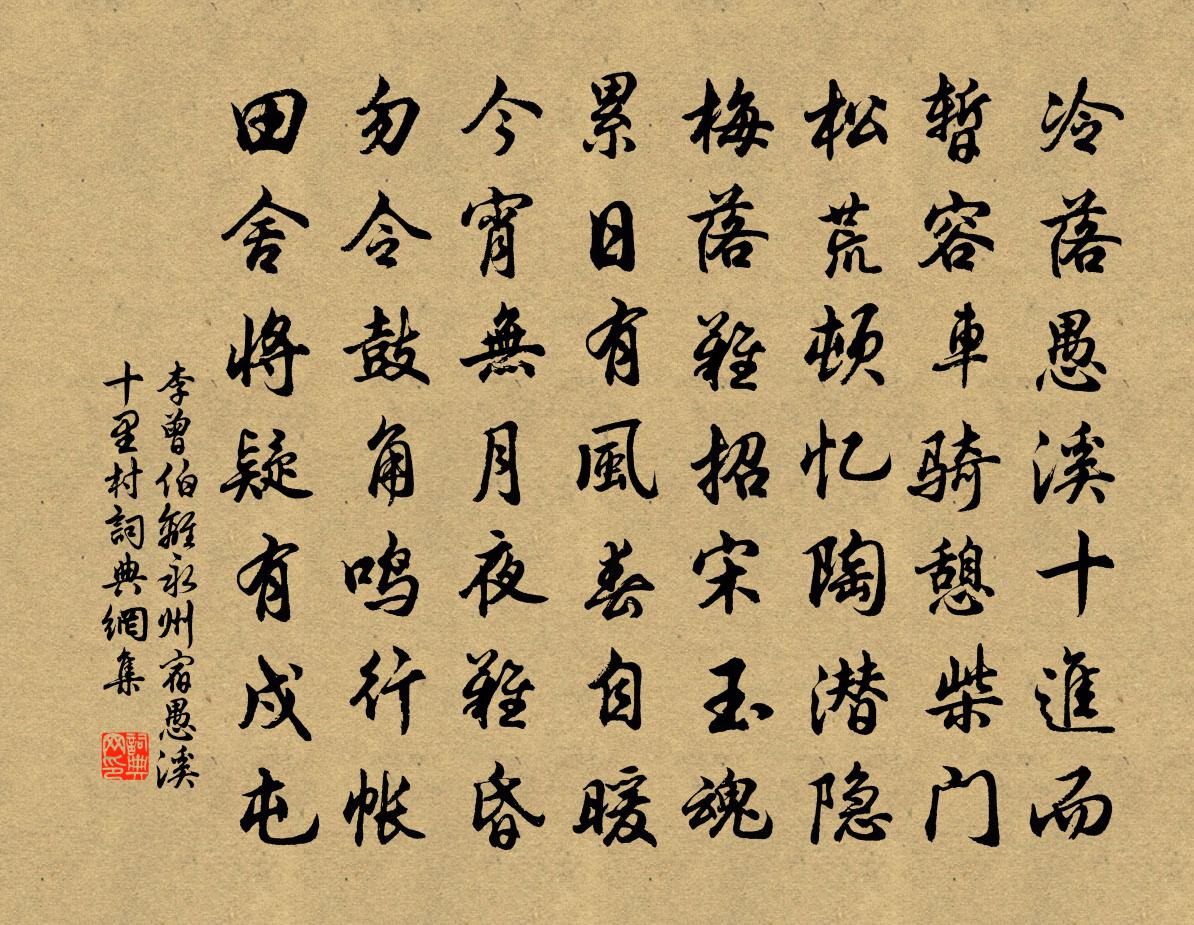 冷落愚溪十進而
暫容車骑憩柴门
松荒顿忆陶潜隐
梅落難招宋玉魂
累日有風春自暖
今宵無月夜難昏
勿令鼓角鸣行帐
田舍将疑有戍屯
李曾伯離永州宿愚溪
十里村詞典網集
詞典网印